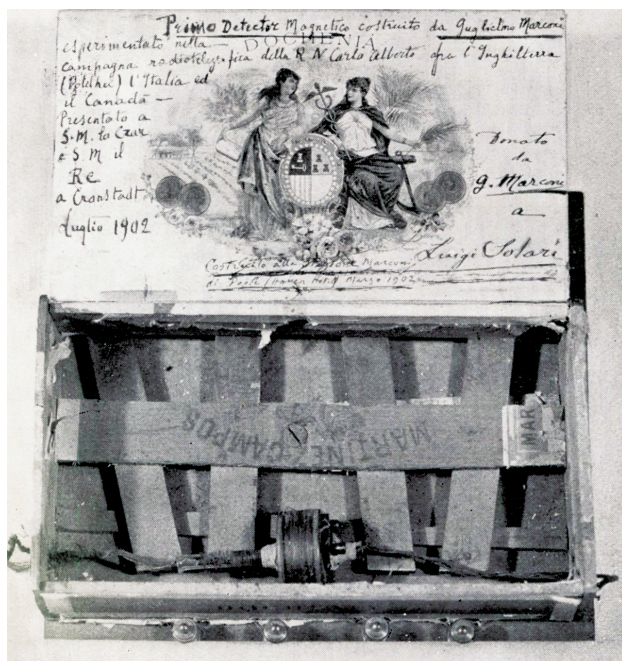 Primo Detector Magnetico costruito da Guglielmo Marconi
esperimentato nella
BOCHENIA
campagna radiotelegrafica della R N Carlo Alberto fra l'Inghilterra
(Poldhu) l'Italia ed
il Canadà —
Presentato a
S.M. lo Czar
e S M il
Re
a Cronstadt
Luglio 1902
Donato
da
G. Marconi
a
Luigi Solari
Costruito alla Marconi
di Poole Marzo 1902
MARTINEZ CAMPOS
MAR